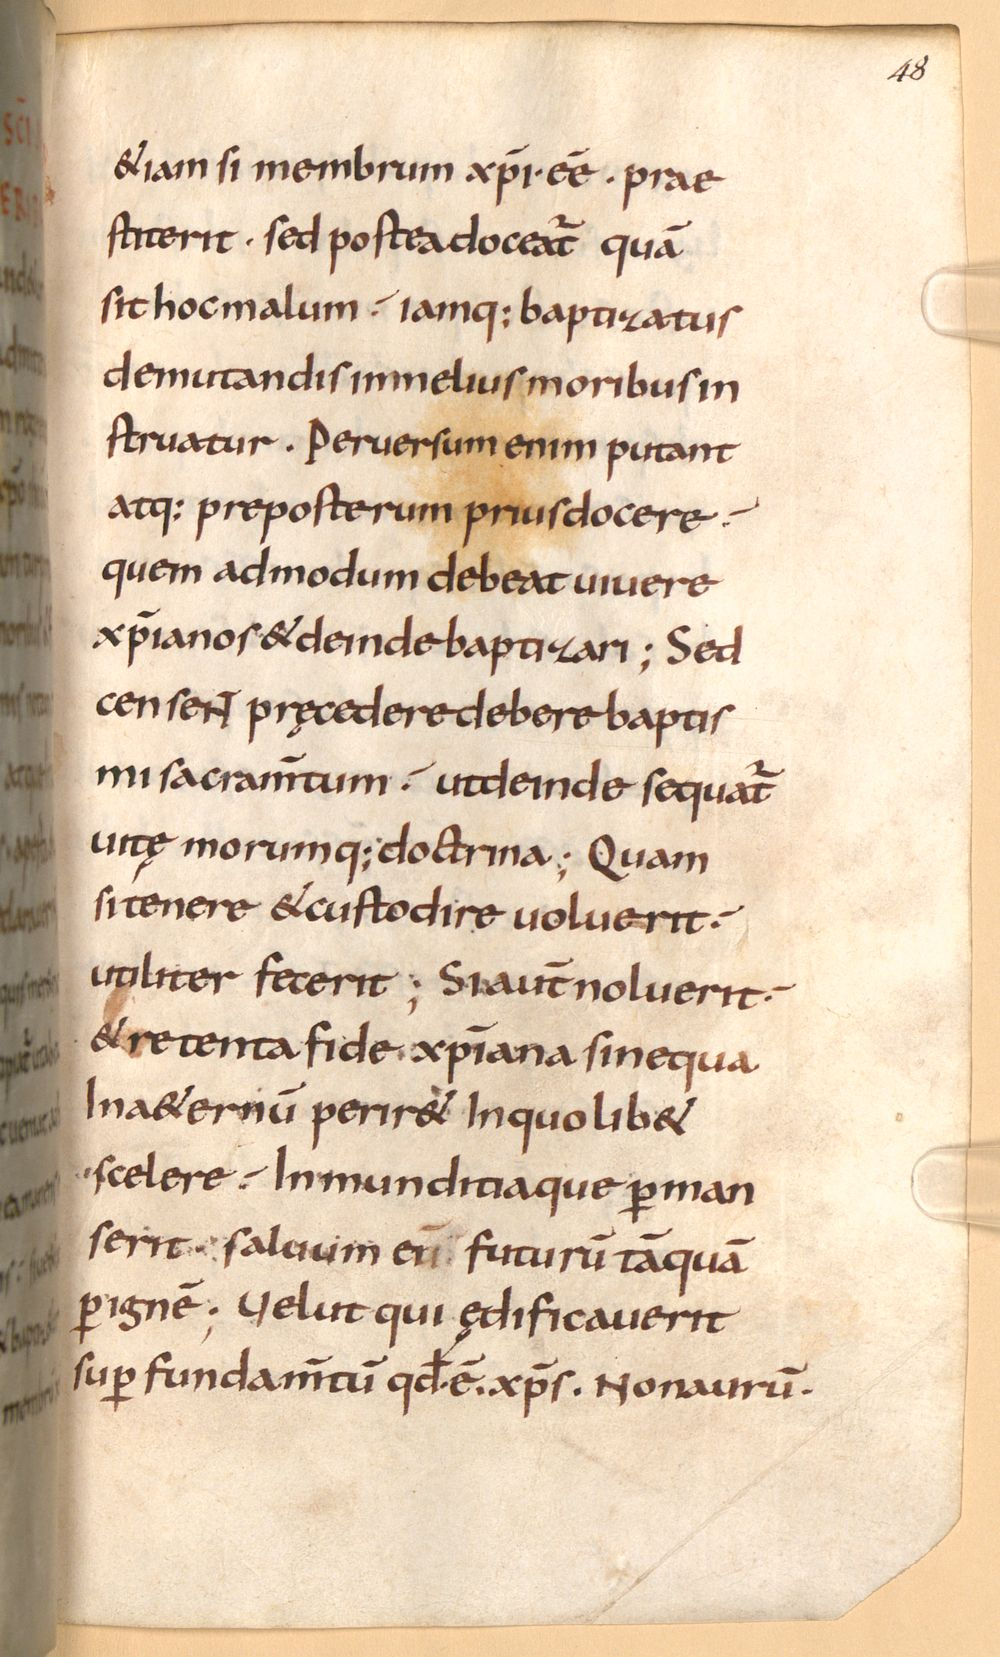 48
&iam si membrum xp̄i· eē̄ · prae
stiterit · sed postea doceat̄ quā
sit hoc malum · iamq; baptizatus
demutandis inmelius moribus in
struatur . Peruersum enim putant
atq: preposterum prius docere ·
quem admodum debeat uiuere
xp̄ianos & deinde baptizari ; Sed
censeNT pręcedere debere baptis
mi sacram̄tum · ut deinde sequat̄
uitę morumq; doctrina ; Quam
si tenere & custodire uoluerit ·
utiliter fecerit ; Si aut̄ noluerit ·
& retenta fide xp̄iana sine qua
In a&ernū perir& In quolib&
scelere · Inmunditiaque ꝑman
serit · saluum eū futurū tāquā
ꝑ ignē ; Uelut qui ędificauerit
suꝑ fundam̄tū qđ · ē · xp̄s . Non aurū ·